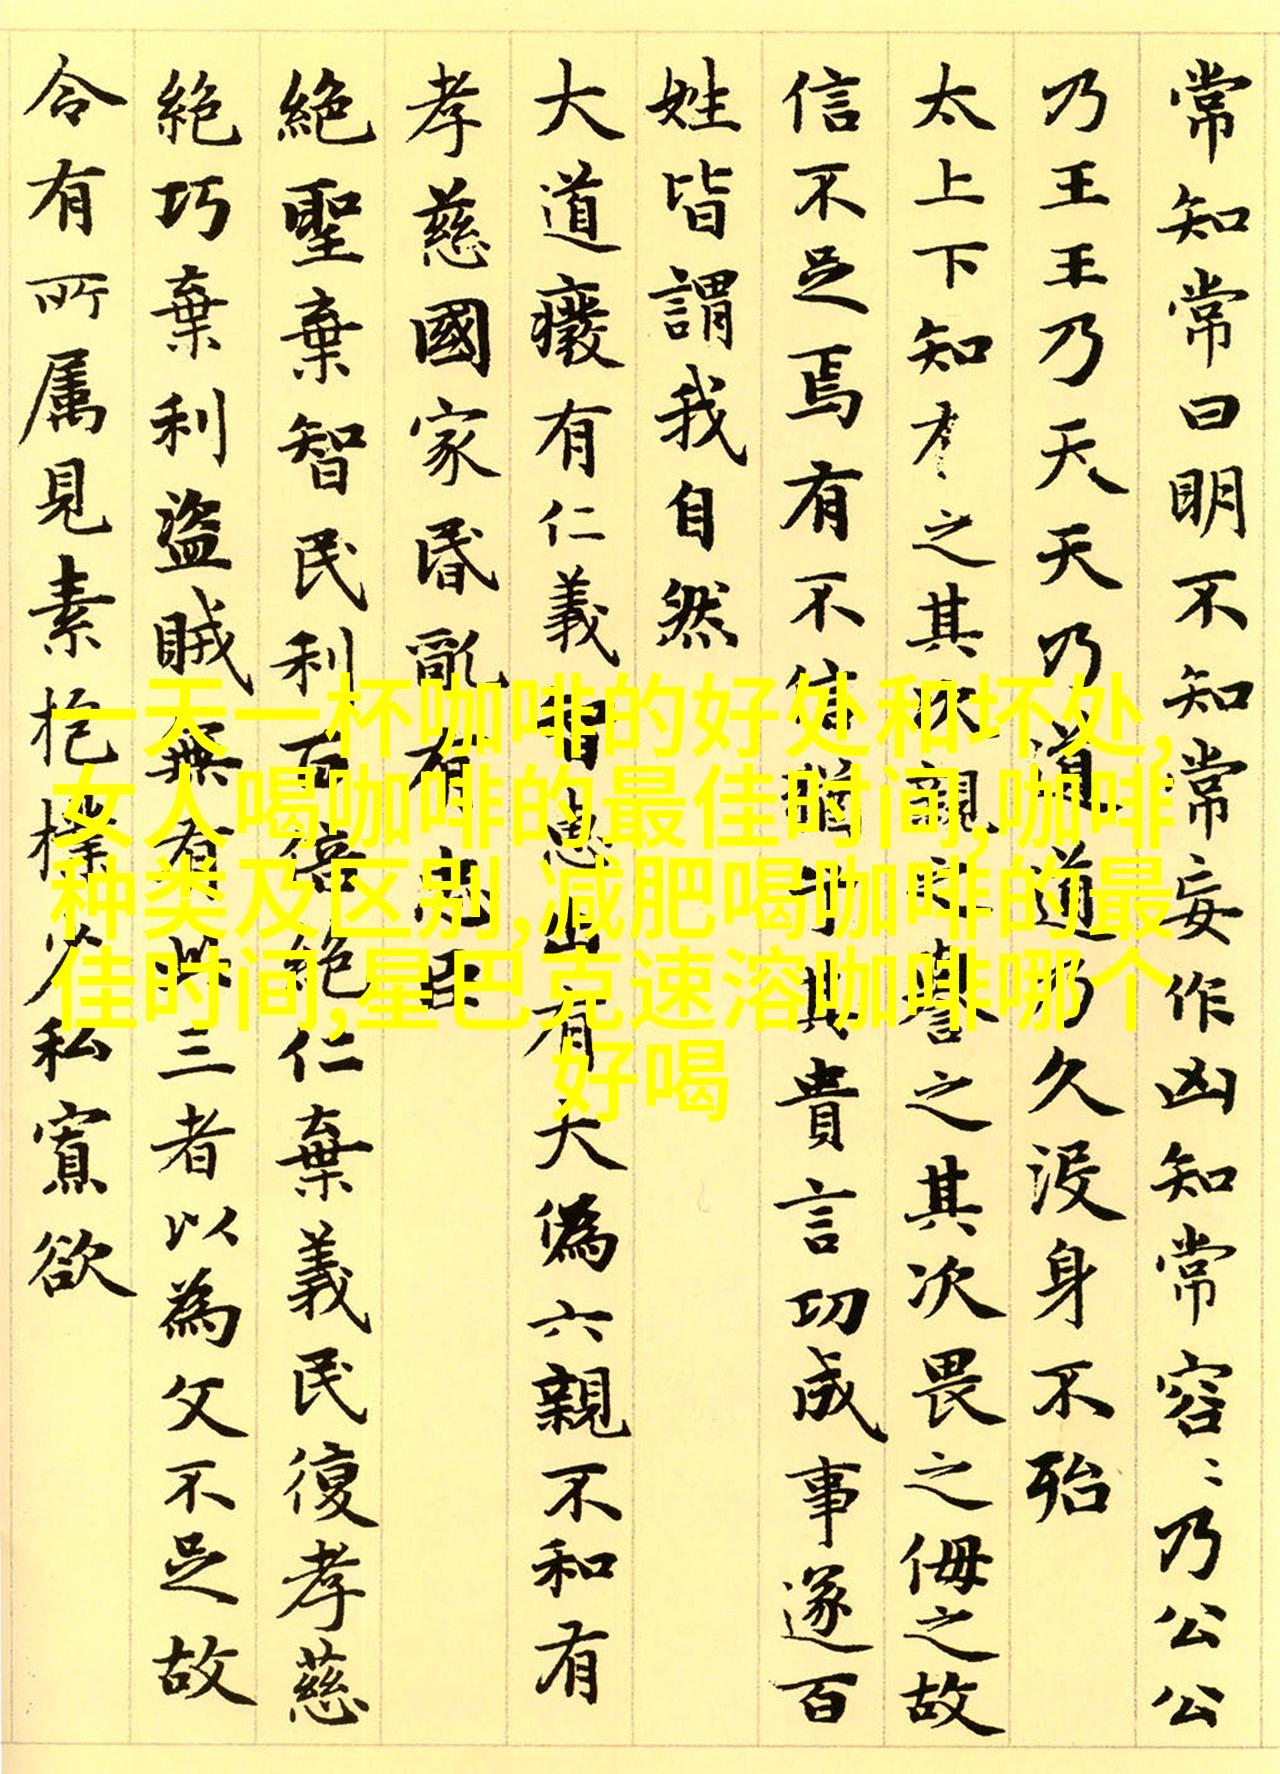 常知常曰明不知常妄作凶知常容〻乃公公
乃王王乃天天乃道道乃久沒身不殆
太上下知有之其次親之譽之其次畏之侮之故
信不足焉有不信猶乎其貴言功成事遂百
姓皆謂我自然
大道癈有仁義智惠出有大偽六親不和有
孝慈國家昏亂有忠臣
絕聖棄智民利百倍絕仁棄義民復孝慈
絕巧棄利盜賊無有此三者以為文不足故
令有所属見素抱樸少私寡欲
一天一杯咖啡的好处和坏处,
女人喝咖啡的最佳时间,咖啡
种类及区别,减肥喝咖啡的最
佳时间,星巴克速溶咖啡哪个
好喝